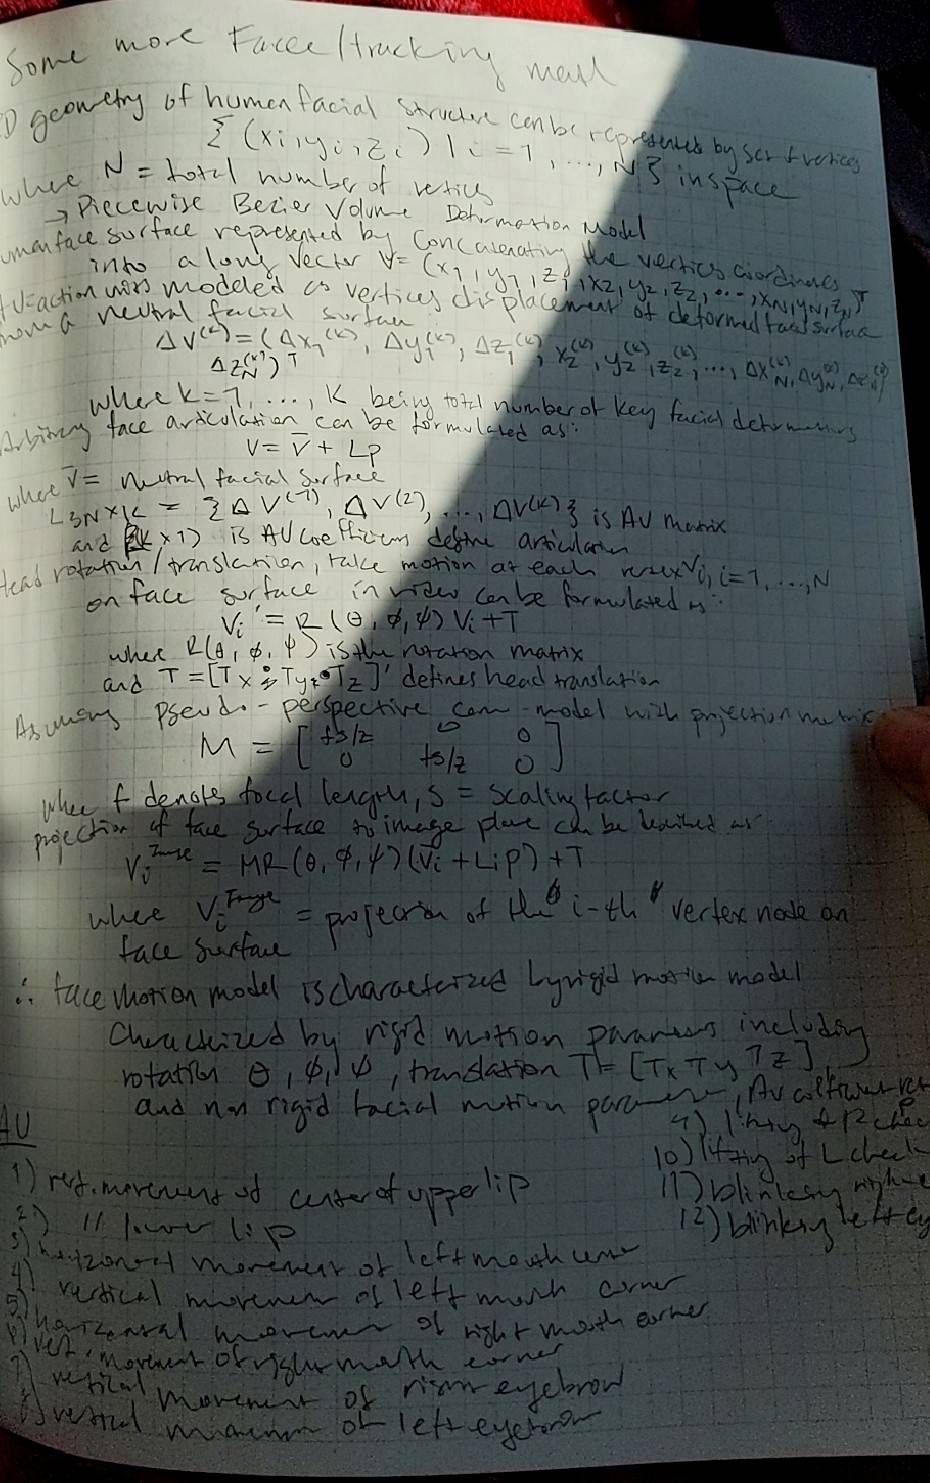 Some more Face/tracking math
D geometry of human facial structure can be represented by set of vertices
{(xi, yi, zi) | i = 1, ..., N} in space
where N = total number of vertices
→ Piecewise Bezier Volume Deformation Model
uman face surface represented by concatenating the vertices coordinates
into a long vector V = (x1, y1, z1, x2, y2, z2, ..., xN, yN, zN)T
AU = action modeled as vertices displacement of deformed facial surface
from a neutral facial surface
ΔV(k) = (Δx1(k), Δy1(k), Δz1(k), x2(k), y2(k), z2(k), ..., ΔxN(k), ΔyN(k), ΔzN(k)
ΔzN(k))T
where k = 1, ..., K being total number of key facial deformations
Arbitrary face articulation can be formulated as:
V = V̄ + Lp
where V̄ = neutral facial surface
L3N×K = {ΔV(1), ΔV(2), ..., ΔV(K)} is AU matrix
and (K×1) is AU coefficients define articulation
Head rotation/translation, face motion at each vertex Vi, i = 1, ..., N
on face surface in video can be formulated as:
Vi' = R(θ, φ, ψ)Vi + T
where R(θ, φ, ψ) is the rotation matrix
and T = [Tx Ty Tz]' defines head translation
Assuming pseudo-perspective cam-model with projection matrix
M = [ fs/z 0 0
0 fs/z 0 ]
where f denotes focal length, s = scaling factor
projection of face surface to image plane can be described as
Vi Image = MR(θ, φ, ψ)(V̄i + Lip) + T
where Vi Image = projection of the i-th vertex node on
face surface
∴ face motion model is characterized by rigid motion model
characterized by rigid motion parameters including
rotation θ, φ, ψ, translation T = [Tx Ty Tz],
and non rigid facial motion parameter, AU coefficient vect
AU
1) vert. movement of center of upper lip
2) " lower lip
3) horizontal movement of left mouth corner
4) vertical movement of left mouth corner
5) horizontal movement of right mouth corner
6) vert. movement of right mouth corner
7) vertical movement of right eyebrow
8) vertical movement of left eyebrow
9) lifting of R chee
10) lifting of L cheek
11) blinking right e
12) blinking left ey